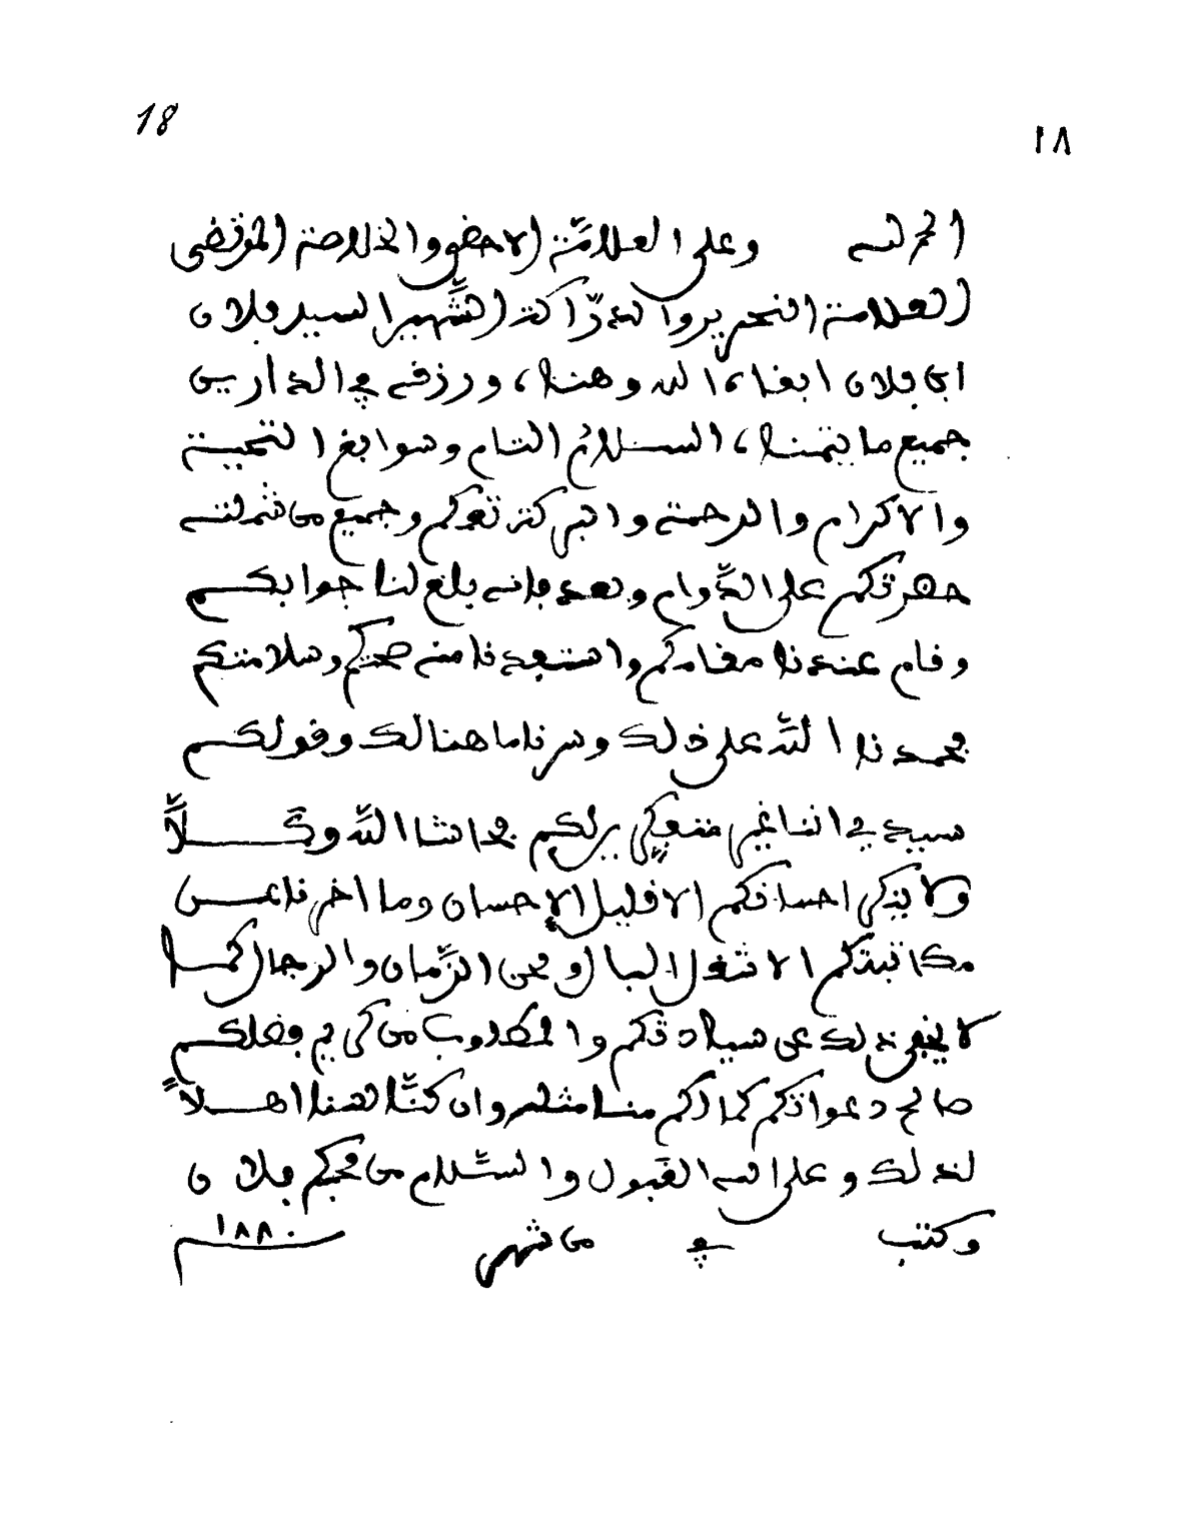 18
١٨
الحمد لله وعلى العلامة الاحضى والخلاصة المرتضى
العلامة النحرير والدرّاكة الشّهير السيد فلان
ابن فلان ابقاه الله وهناه ورزقه في الدارين
جميع ما يتمناه السلام التام وسوابغ التحية
والاكرام والرحمة والبركة تعمكم وجميع من شملته
حضرتكم على الدّوام وبعد فانه بلغ لنا جوابكم
وقام عندنا مقامكم واستفدنا منه صحتكم وسلامتكم
فحمدنا اللّه على ذلك وسرنا ما هنالك وقولكم
سيدي اننا غير متفكرين لكم فحاشا اللّه وكَلاَّ
ولا يذكر احسانكم الا قليل الإحسان وما اخرنا عن
مكاتبتكم الا شغل البال ومحن الزّمان والرجال كما
لا يخفى ذلك عن سيادتكم والمطلوب من كريم فضلكم
صالح دعواتكم كما لكم منا مثله وان كنّا لهنا اهلاً
لذلك وعلى الله القبول والسّلام من محبكم فلان
وكتب في من شهر ١٨٨٠